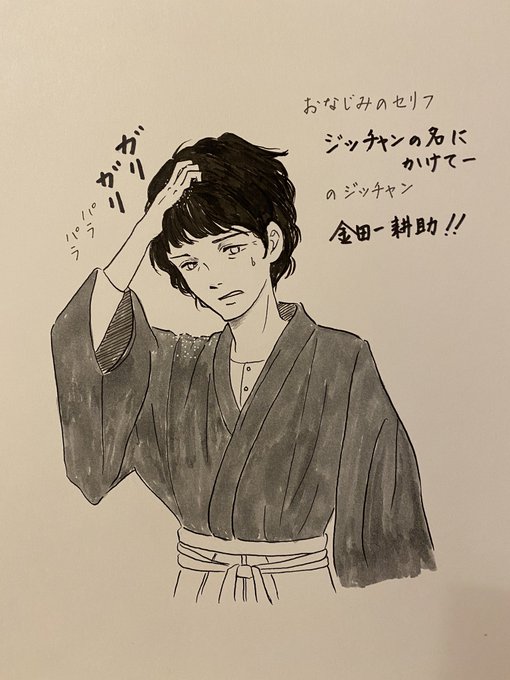 おなじみのセリフ
ジッチャンの名に
かけてー
のジッチャン
金田一耕助!!
ガリ
ガリ
パラ
パラ